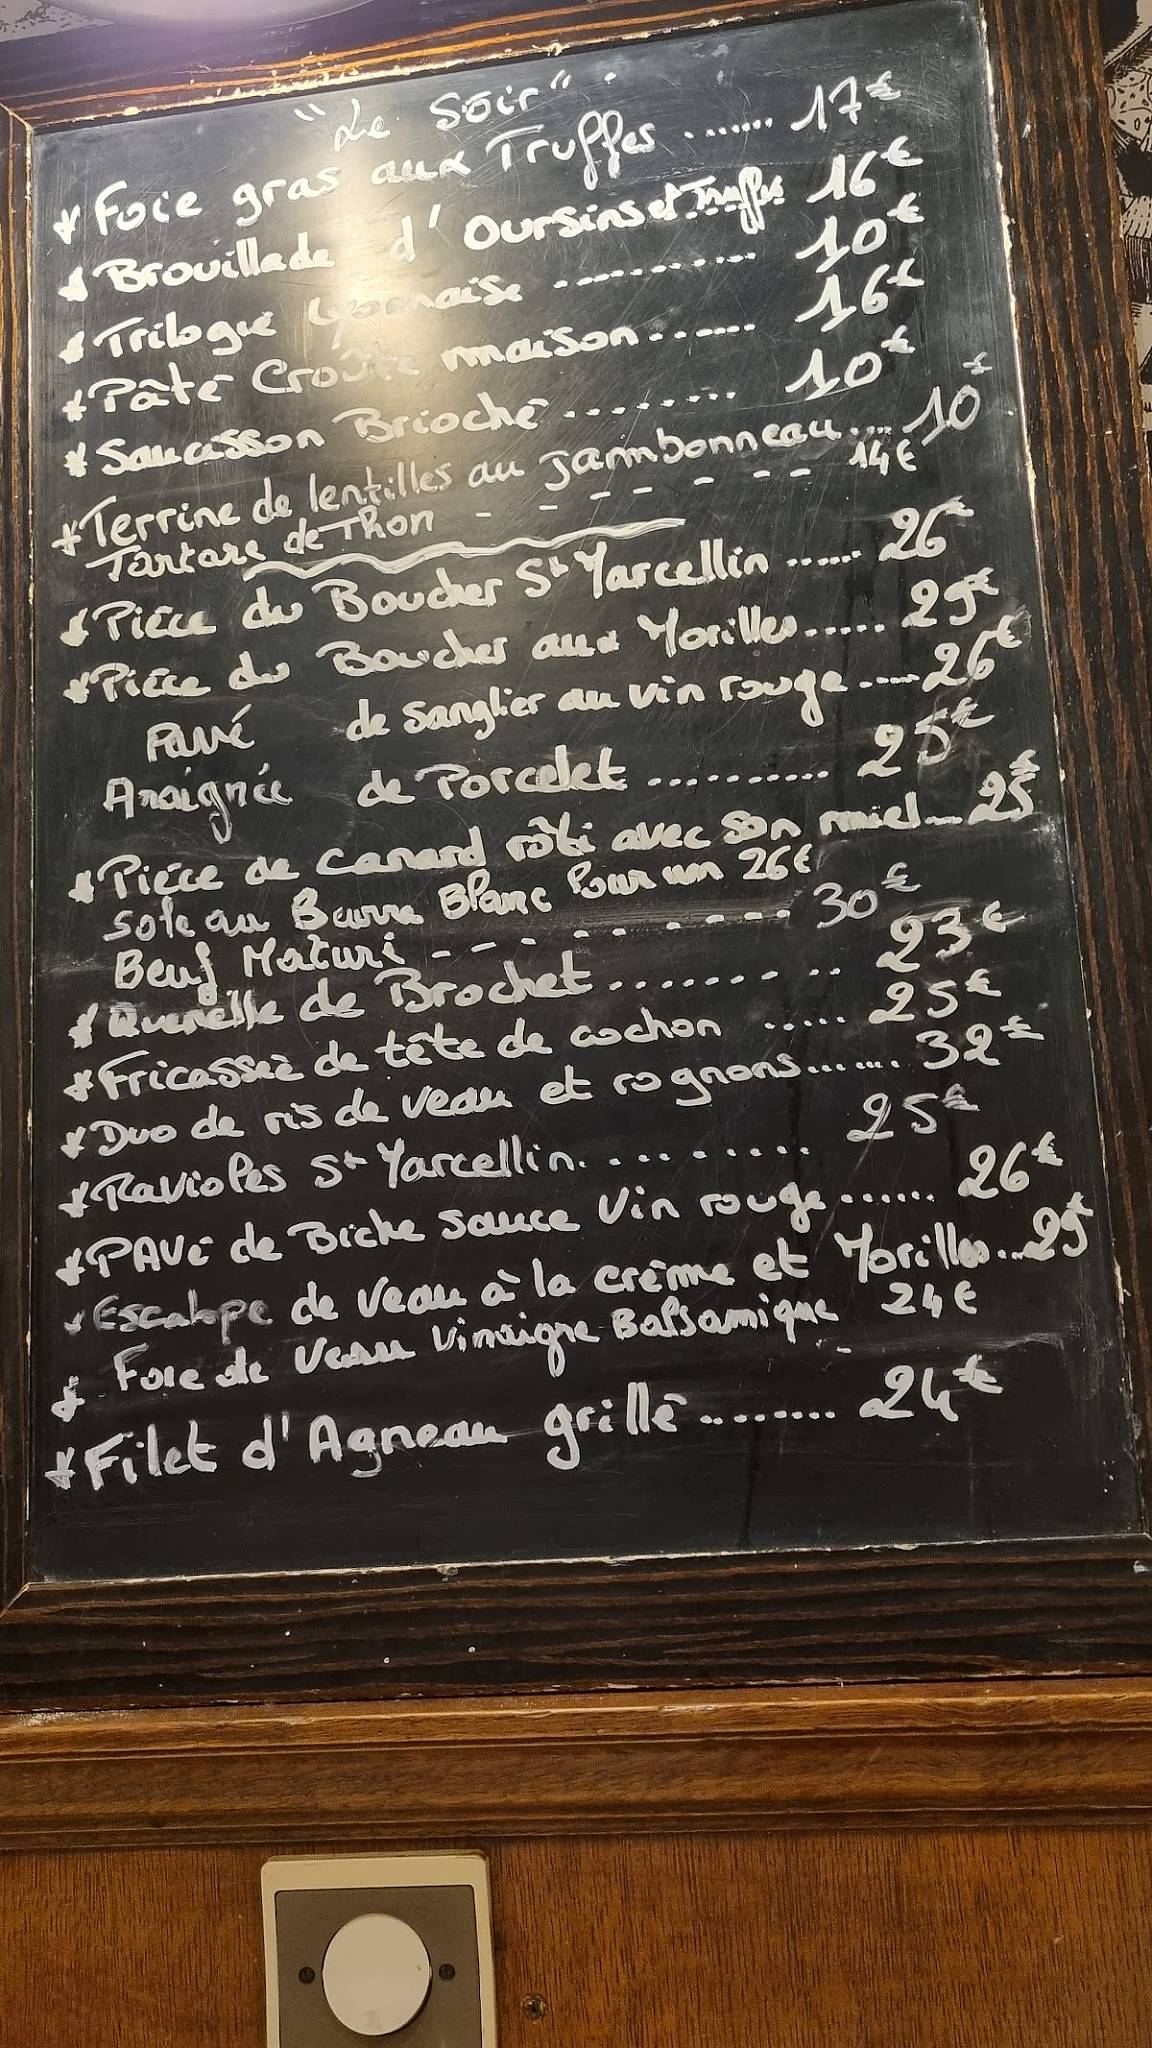 "Le Soir"
* Foie gras aux Truffes ....... 17€
* Brouillade d'Oursins et Truffes 16€
* Trilogie Lyonnaise ........... 10€
* Pâté Croûte maison ...... 16€
* Saucisson Brioché ......... 10€
* Terrine de lentilles au jambonneau ... 10€
Tartare de Thon - - - - - - - 14€
* Pièce du Boucher St Marcellin ...... 26€
* Pièce du Boucher aux Morilles ..... 29€
Pavé de Sanglier au vin rouge .... 26€
Araignée de Porcelet .......... 25€
* Pièce de canard rôti avec son miel ... 25€
Sole au Beurre Blanc Pour un 26€
Beuf Maturé - - - - - - - - - 30€
* Quenelle de Brochet ......... 23€
* Fricassée de tête de cochon ..... 25€
* Duo de ris de veau et rognons ....... 32€
* Ravioles St Marcellin .......... 25€
* PAVé de Biche sauce Vin rouge ...... 26€
* Escalope de Veau à la crème et Morilles ... 29€
* Foie de Veau Vinaigre Balsamique 24€
* Filet d'Agneau grillé ........ 24€